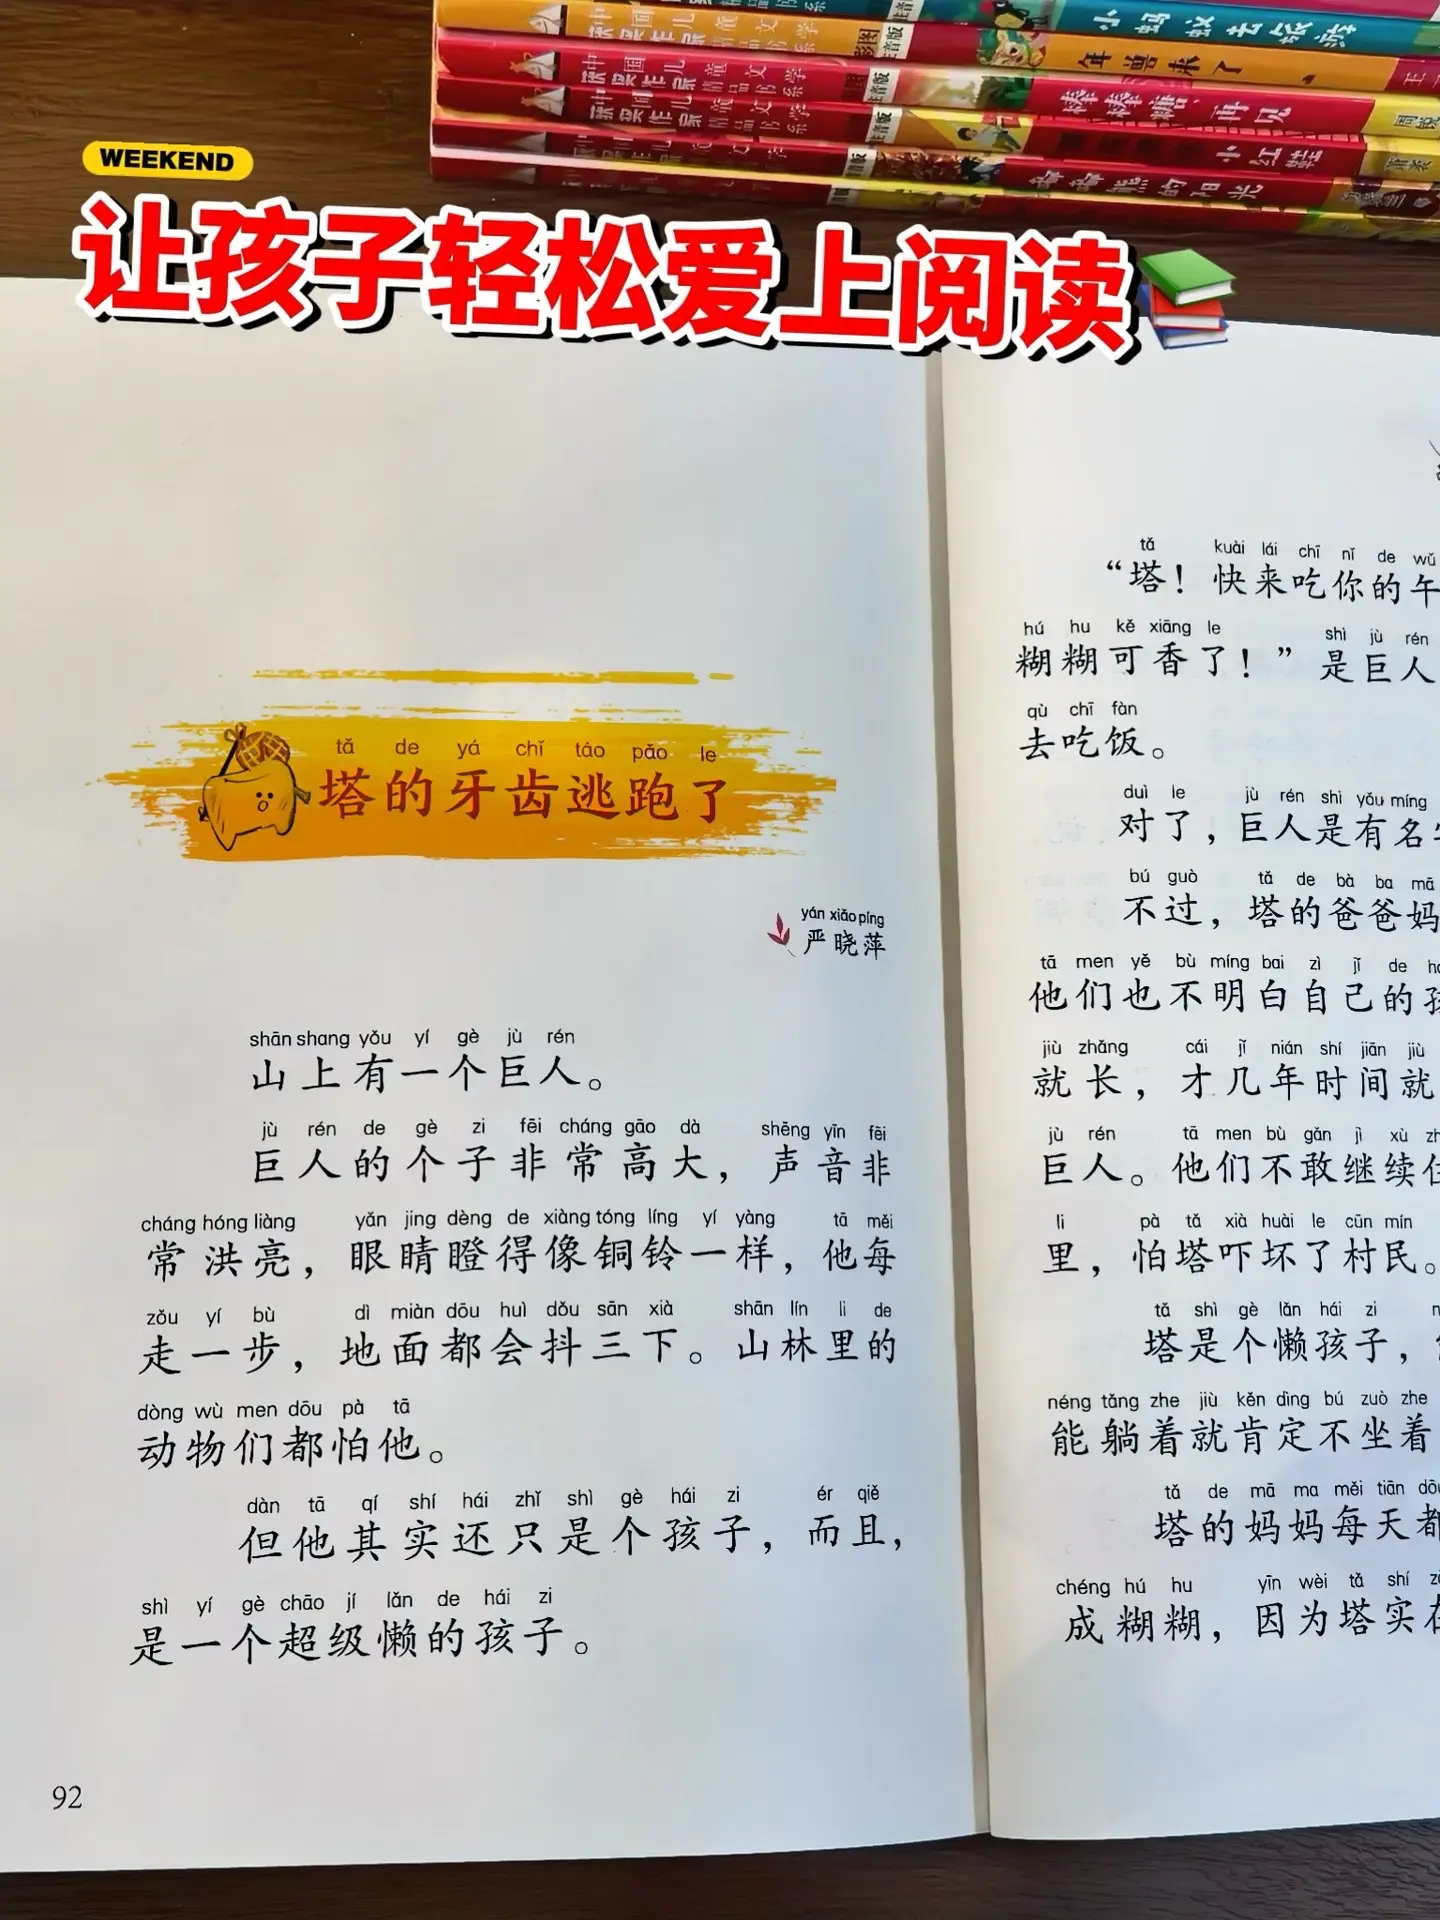 小蚂蚁去旅游
年兽来了
棒棒糖，再见
小红鞋
WEEKEND
让孩子轻松爱上阅读
tǎ de yá chǐ táo pǎo le
塔的牙齿逃跑了
yán xiǎo píng
严晓萍
shān shang yǒu yí gè jù rén
山上有一个巨人。
jù rén de gè zi fēi cháng gāo dà shēng yīn fēi
巨人的个子非常高大，声音非
cháng hóng liàng yǎn jing dèng de xiàng tóng líng yí yàng tā měi
常洪亮，眼睛瞪得像铜铃一样，他每
zǒu yí bù dì miàn dōu huì dǒu sān xià shān lín li de
走一步，地面都会抖三下。山林里的
dòng wù men dōu pà tā
动物们都怕他。
dàn tā qí shí hái zhǐ shì gè hái zi ér qiě
但他其实还只是个孩子，而且，
shì yí gè chāo jí lǎn de hái zi
是一个超级懒的孩子。
92
tǎ kuài lái chī nǐ de wǔ
“塔！快来吃你的午
hú hu kě xiāng le shì jù rén
糊糊可香了！”是巨人
qù chī fàn
去吃饭。
duì le jù rén shì yǒu míng
对了，巨人是有名
bú guò tǎ de bà ba mā
不过，塔的爸爸妈
tā men yě bù míng bai zì jǐ de
他们也不明白自己的孩
jiù zhǎng cái jǐ nián shí jiān jiù
就长，才几年时间就
jù rén tā men bù gǎn jì xù
巨人。他们不敢继续住
li pà tǎ xià huài le cūn mín
里，怕塔吓坏了村民。
tǎ shì gè lǎn hái zi
塔是个懒孩子，
néng tǎng zhe jiù kěn dìng bú zuò zhe
能躺着就肯定不坐着
tǎ de mā ma měi tiān dōu
塔的妈妈每天都
chéng hú hu yīn wèi tǎ shí
成糊糊，因为塔实在